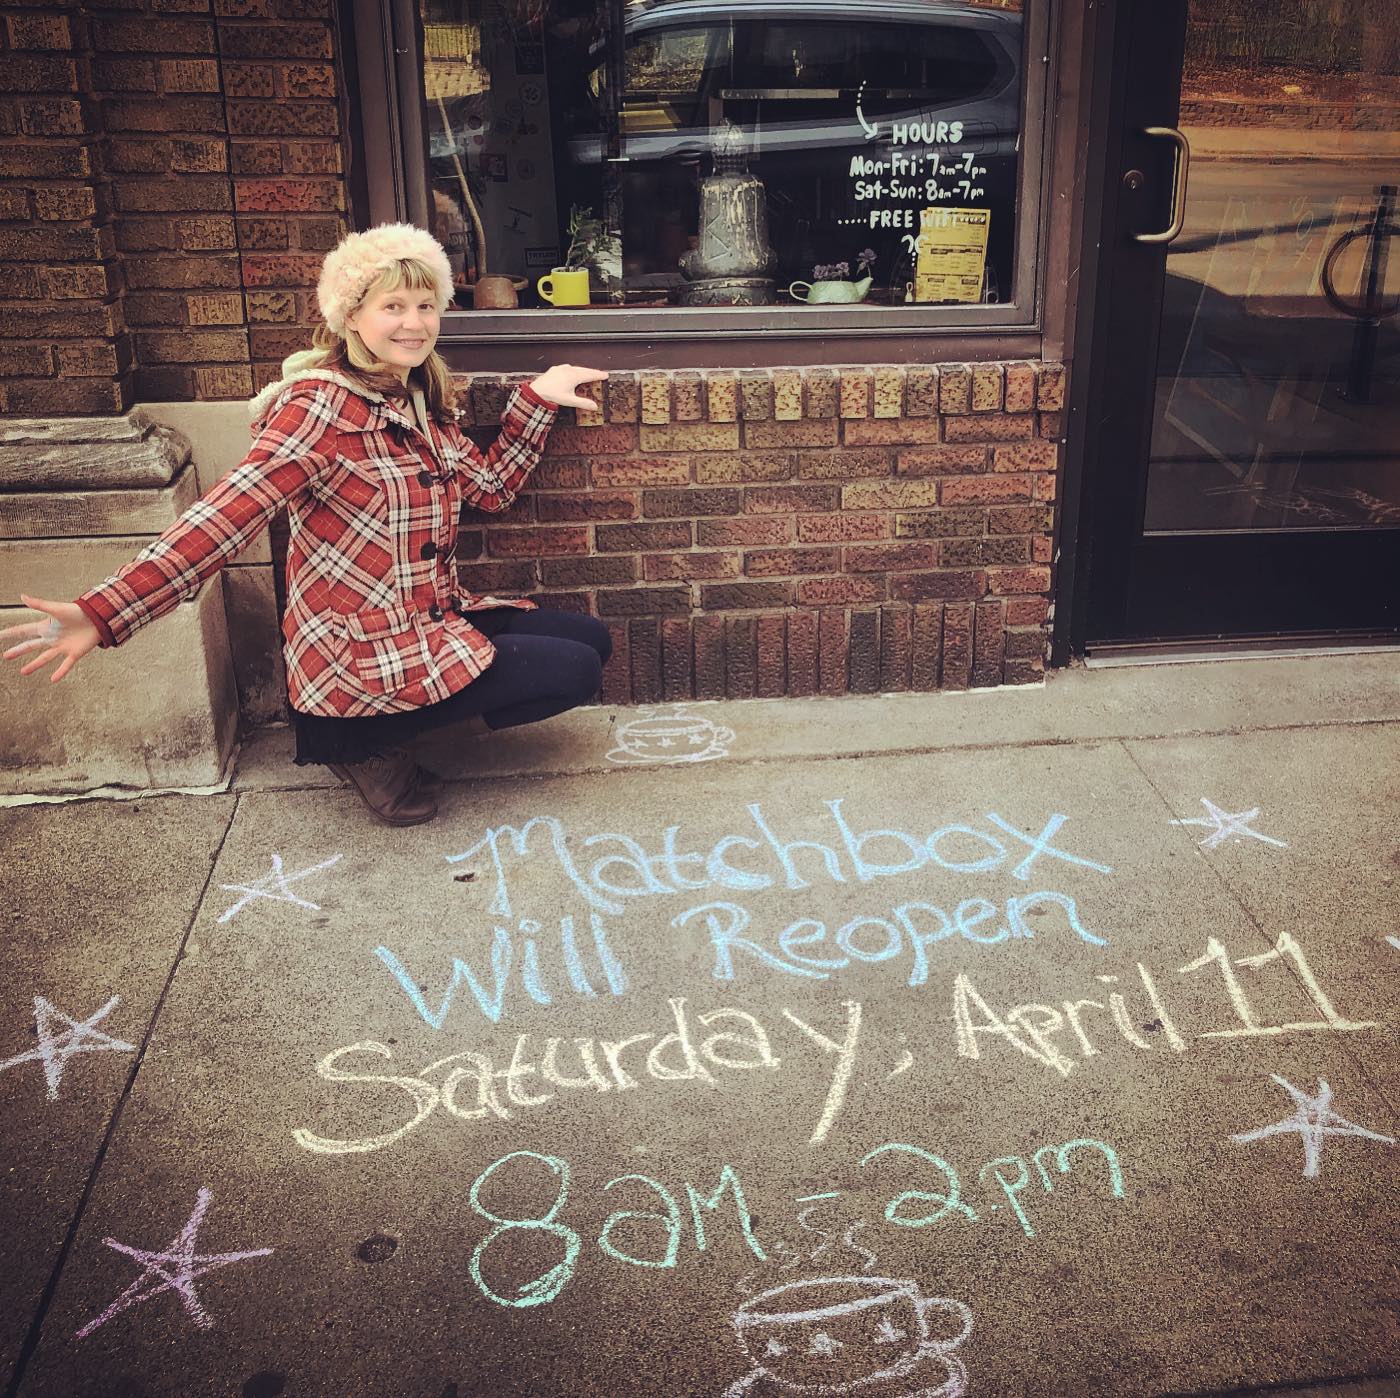 HOURS
Mon-Fri: 7am-7pm
Sat-Sun: 8am-7pm
..... FREE WiFi
Matchbox
Will Reopen
Saturday, April 11
8am - 2pm